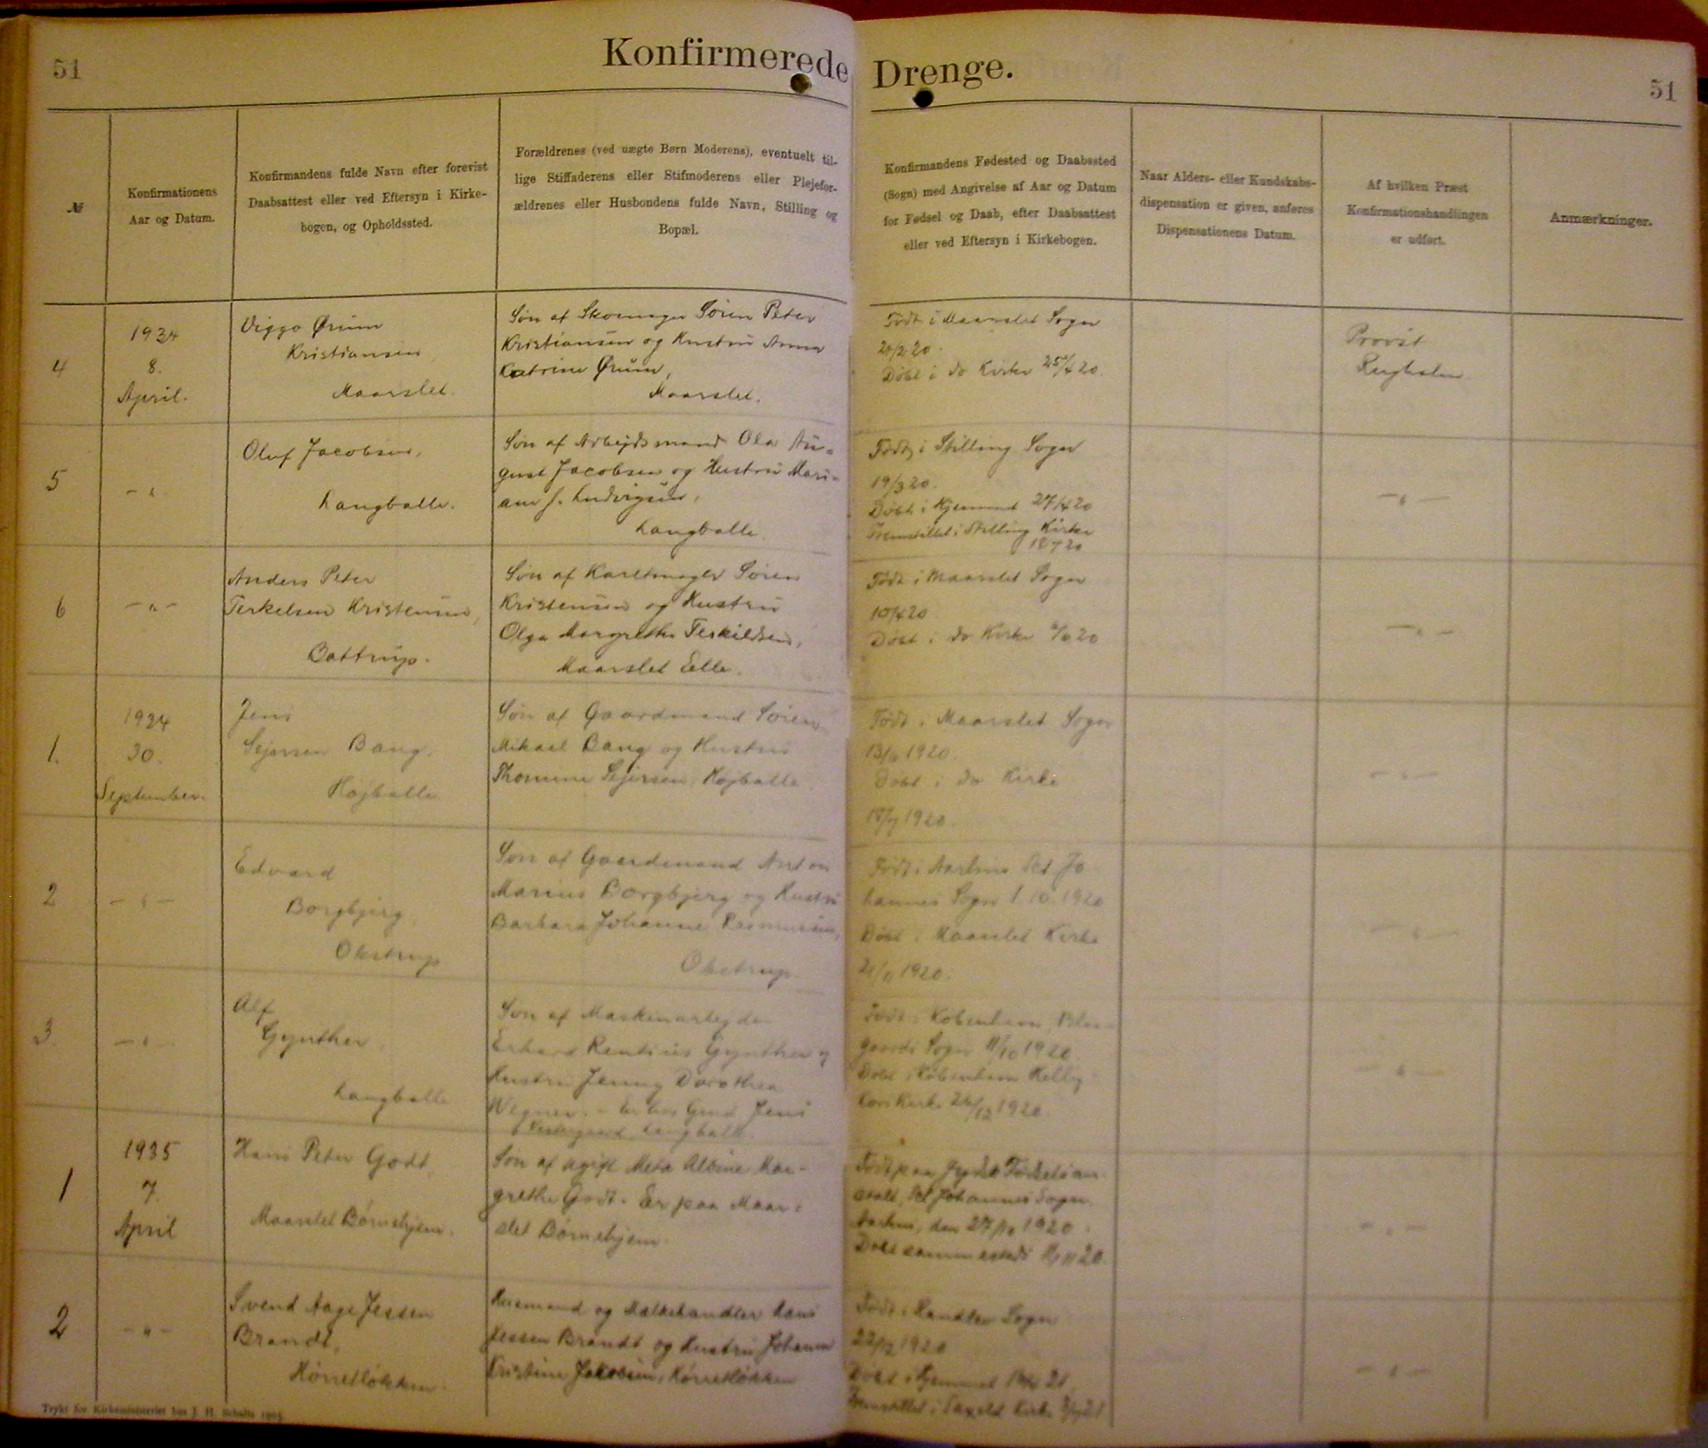 51
Konfirmerede Drenge.
51
№
Konfirmationens
Aar og Datum.
Konfirmandens fulde Navn efter forevist
Daabsattest eller ved Eftersyn i Kirke-
bogen, og Opholdssted.
Forældrenes (ved uægte Børn Moderens), eventuelt til-
lige Stiffaderens eller Stifmoderens eller Plejefor-
ældrenes eller Husbondens fulde Navn, Stilling og
Bopæl.
Konfirmandens Fødested og Daabssted
(Sogn) med Angivelse af Aar og Datum
for Fødsel og Daab, efter Daabsattest
eller ved Eftersyn i Kirkebogen.
Naar Alders- eller Kundskabs-
dispensation er given, anføres
Dispensationens Datum.
Af hvilken Præst
Konfirmationshandlingen
er udført.
Anmærkninger.
4
1934
8.
April.
Viggo Ørum
Kristiansen
Maarslet.
Søn af Skomager Søren Peter
Kristiansen og Hustru Anna
Katrine Ørum,
Maarslet.
Født i Maarslet Sogn
20.
Døbt i do Kirke 25/4 20.
Provst
5
- " -
Oluf Jacobsen,
Langballe.
Søn af Arbejdsmand Ola Au-
gust Jacobsen og Hustru Mari-
ane f. Ludvigsen,
Langballe.
Født i Stilling Sogn
19/3 20.
Døbt i Hjemmet 27/4 20
Fremstillet i Stilling Kirke
20
- " -
6
- " -
Anders Peter
Terkelsen Kristensen,
Battrup.
Søn af Karetmager Søren
Kristensen og Hustru
Olga Margrethe Terkildsen,
Maarslet
Født i Maarslet Sogn
10/4 20.
Døbt i do Kirke 20
- " -
1.
1934
30.
September.
Jens
Sejersen Bang,
Højballe
Søn af Gaardmand Søren
Mikael Bang og Hustru
Thomine Sejersen, Højballe
Født i Maarslet Sogn
1920.
Døbt i do Kirke
1920.
- " -
2
- " -
Edvard
Borgbjerg,
Obstrup
Søn af Gaardmand Anton
Marius Borgbjerg og Hustru
Barbara Johanne Rasmussen,
Obstrup.
Født i Aarhus Sct Jo-
hannes Sogn 1.10.1920
Døbt i Maarslet Kirke
21/11 1920.
- " -
3.
- " -
Alf
Gynther,
Langballe
Søn af Maskinarbejder
Erhard Gynther og
Hustru Jenny Dorothea
Wegner. - Er hos Gmd Jens
Langballe.
Født i København, Blaa-
gaards Sogn 11/10 1920.
Døbt i København Hellig-
kors Kirke 26/12 1920.
- " -
1
1935
7.
April
Hans Peter Godt,
Maarslet Børnehjem.
Søn af ugift Meta Albine Mar-
grethe Godt. Er paa Maar-
slet Børnehjem.
Født paa Jydske Fødselsan-
stalt, Sct Johannes Sogn,
Aarhus, den 27/10 1920.
Døbt sammesteds 20.
- " -
2
- " -
Svend Aage Jessen
Brandt,
Hørretløkken.
Husmand og Mælkehandler Hans
Jessen Brandt og Hustru Johanne
Kristine Jakobsen, Hørretløkken
Født i Sogn
22/12 1920
Døbt i Hjemmet 21
Fremstillet i Kirke 21
- " -
Trykt for Kirkeministeriet hos J. H. Schultz